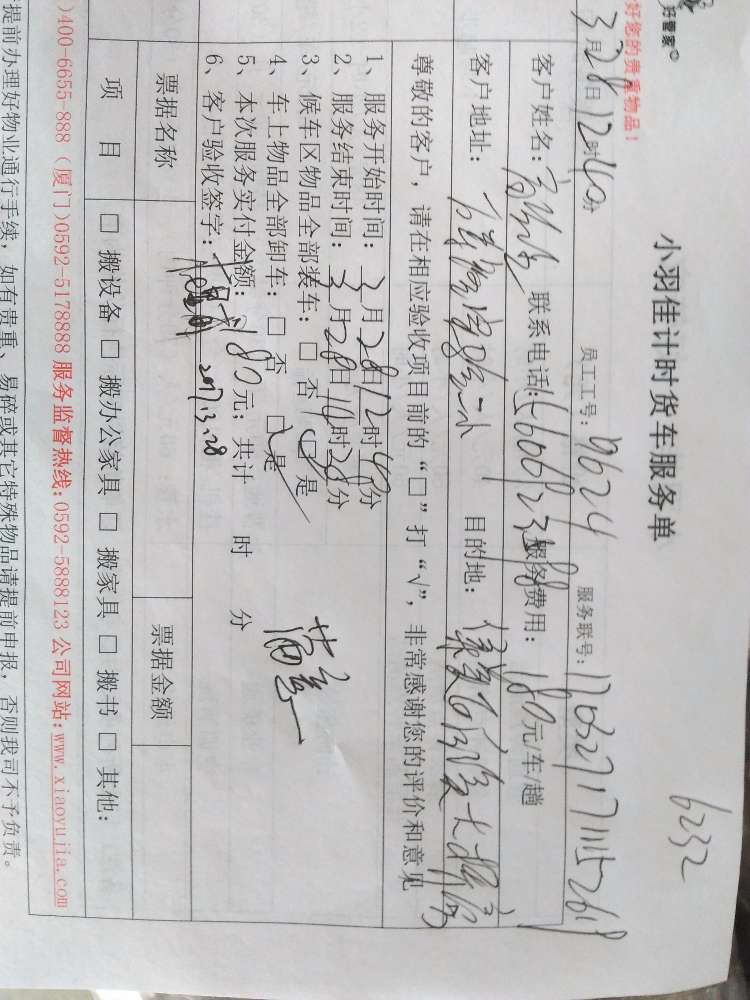 好管家
好您的贵重物品！
6232
小羽佳计时货车服务单
3月28日12时40分 员工工号：9624 服务联号：
客户姓名： 联系电话： 服务费用：180元/车/趟
客户地址： 目的地：
尊敬的客户，请在相应验收项目前的“□”打“√”，非常感谢您的评价和意见
1、服务开始时间：3月28日12时40分
2、服务结束时间：3月28日14时28分
3、候车区物品全部装车：□ 否 □ 是
4、车上物品全部卸车：□ 否 □ 是
5、本次服务实付金额：180元；共计 时 分
6、客户验收签字： 2017.3.28
满意
票据名称 票据金额
项 目 □ 搬设备 □ 搬办公家具 □ 搬家具 □ 搬书 □ 其他：
)400-6655-888（厦门)0592-5178888 服务监督热线:0592-5888123 公司网站:www.xiaoyujia.com
提前办理好物业通行手续，如有贵重、易碎或其它特殊物品请提前申报，否则我司不予负责。